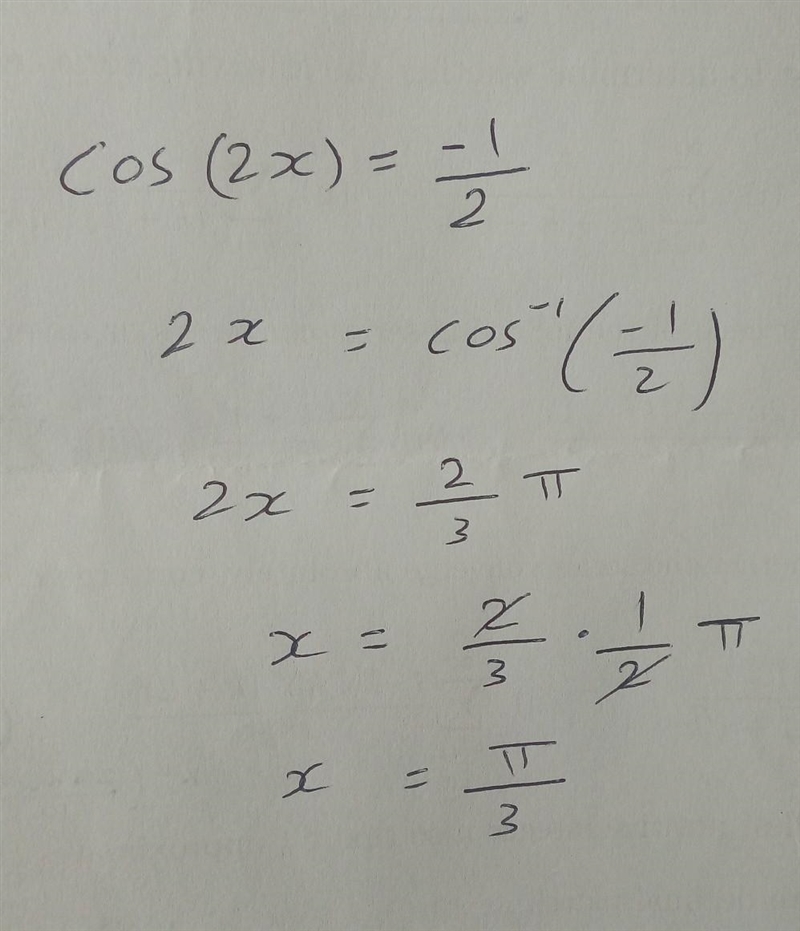 cos (2x) = -1/2
2x = cos⁻¹(-1/2)
2x = 2/3 π
x = 2/3 · 1/2 π
x = π/3